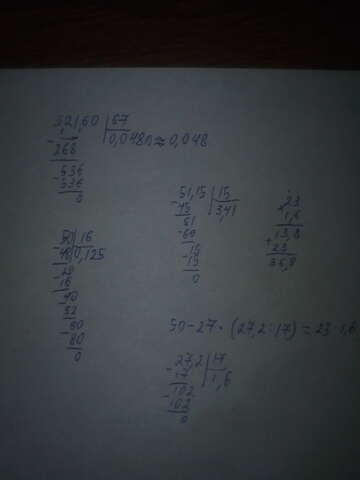 3,21,60 | 67
- 268 0,048 ≈ 0,048
536
- 536
0
51,15 | 15
- 45 3,41
61
- 60
15
- 15
0
23
1,6
13,8
+ 23
36,8
50 | 16
- 48 0,125
20
- 16
40
32
80
- 80
0
50-27·(27,2:17)=23·1,6
- 27,2 | 17
17 1,6
- 102
102
0